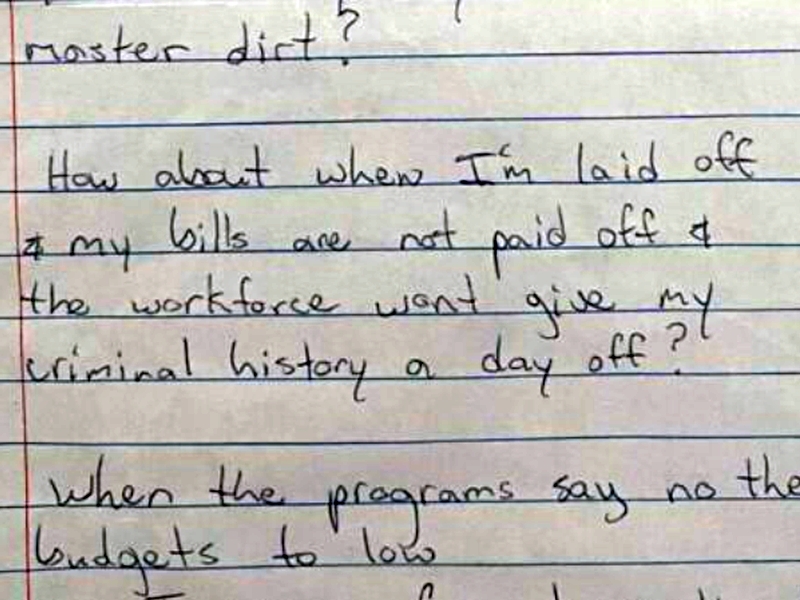 master dirt?
How about when I'm laid off
& my bills are not paid off &
the workforce wont give my
criminal history a day off?
When the programs say no the
budgets to low